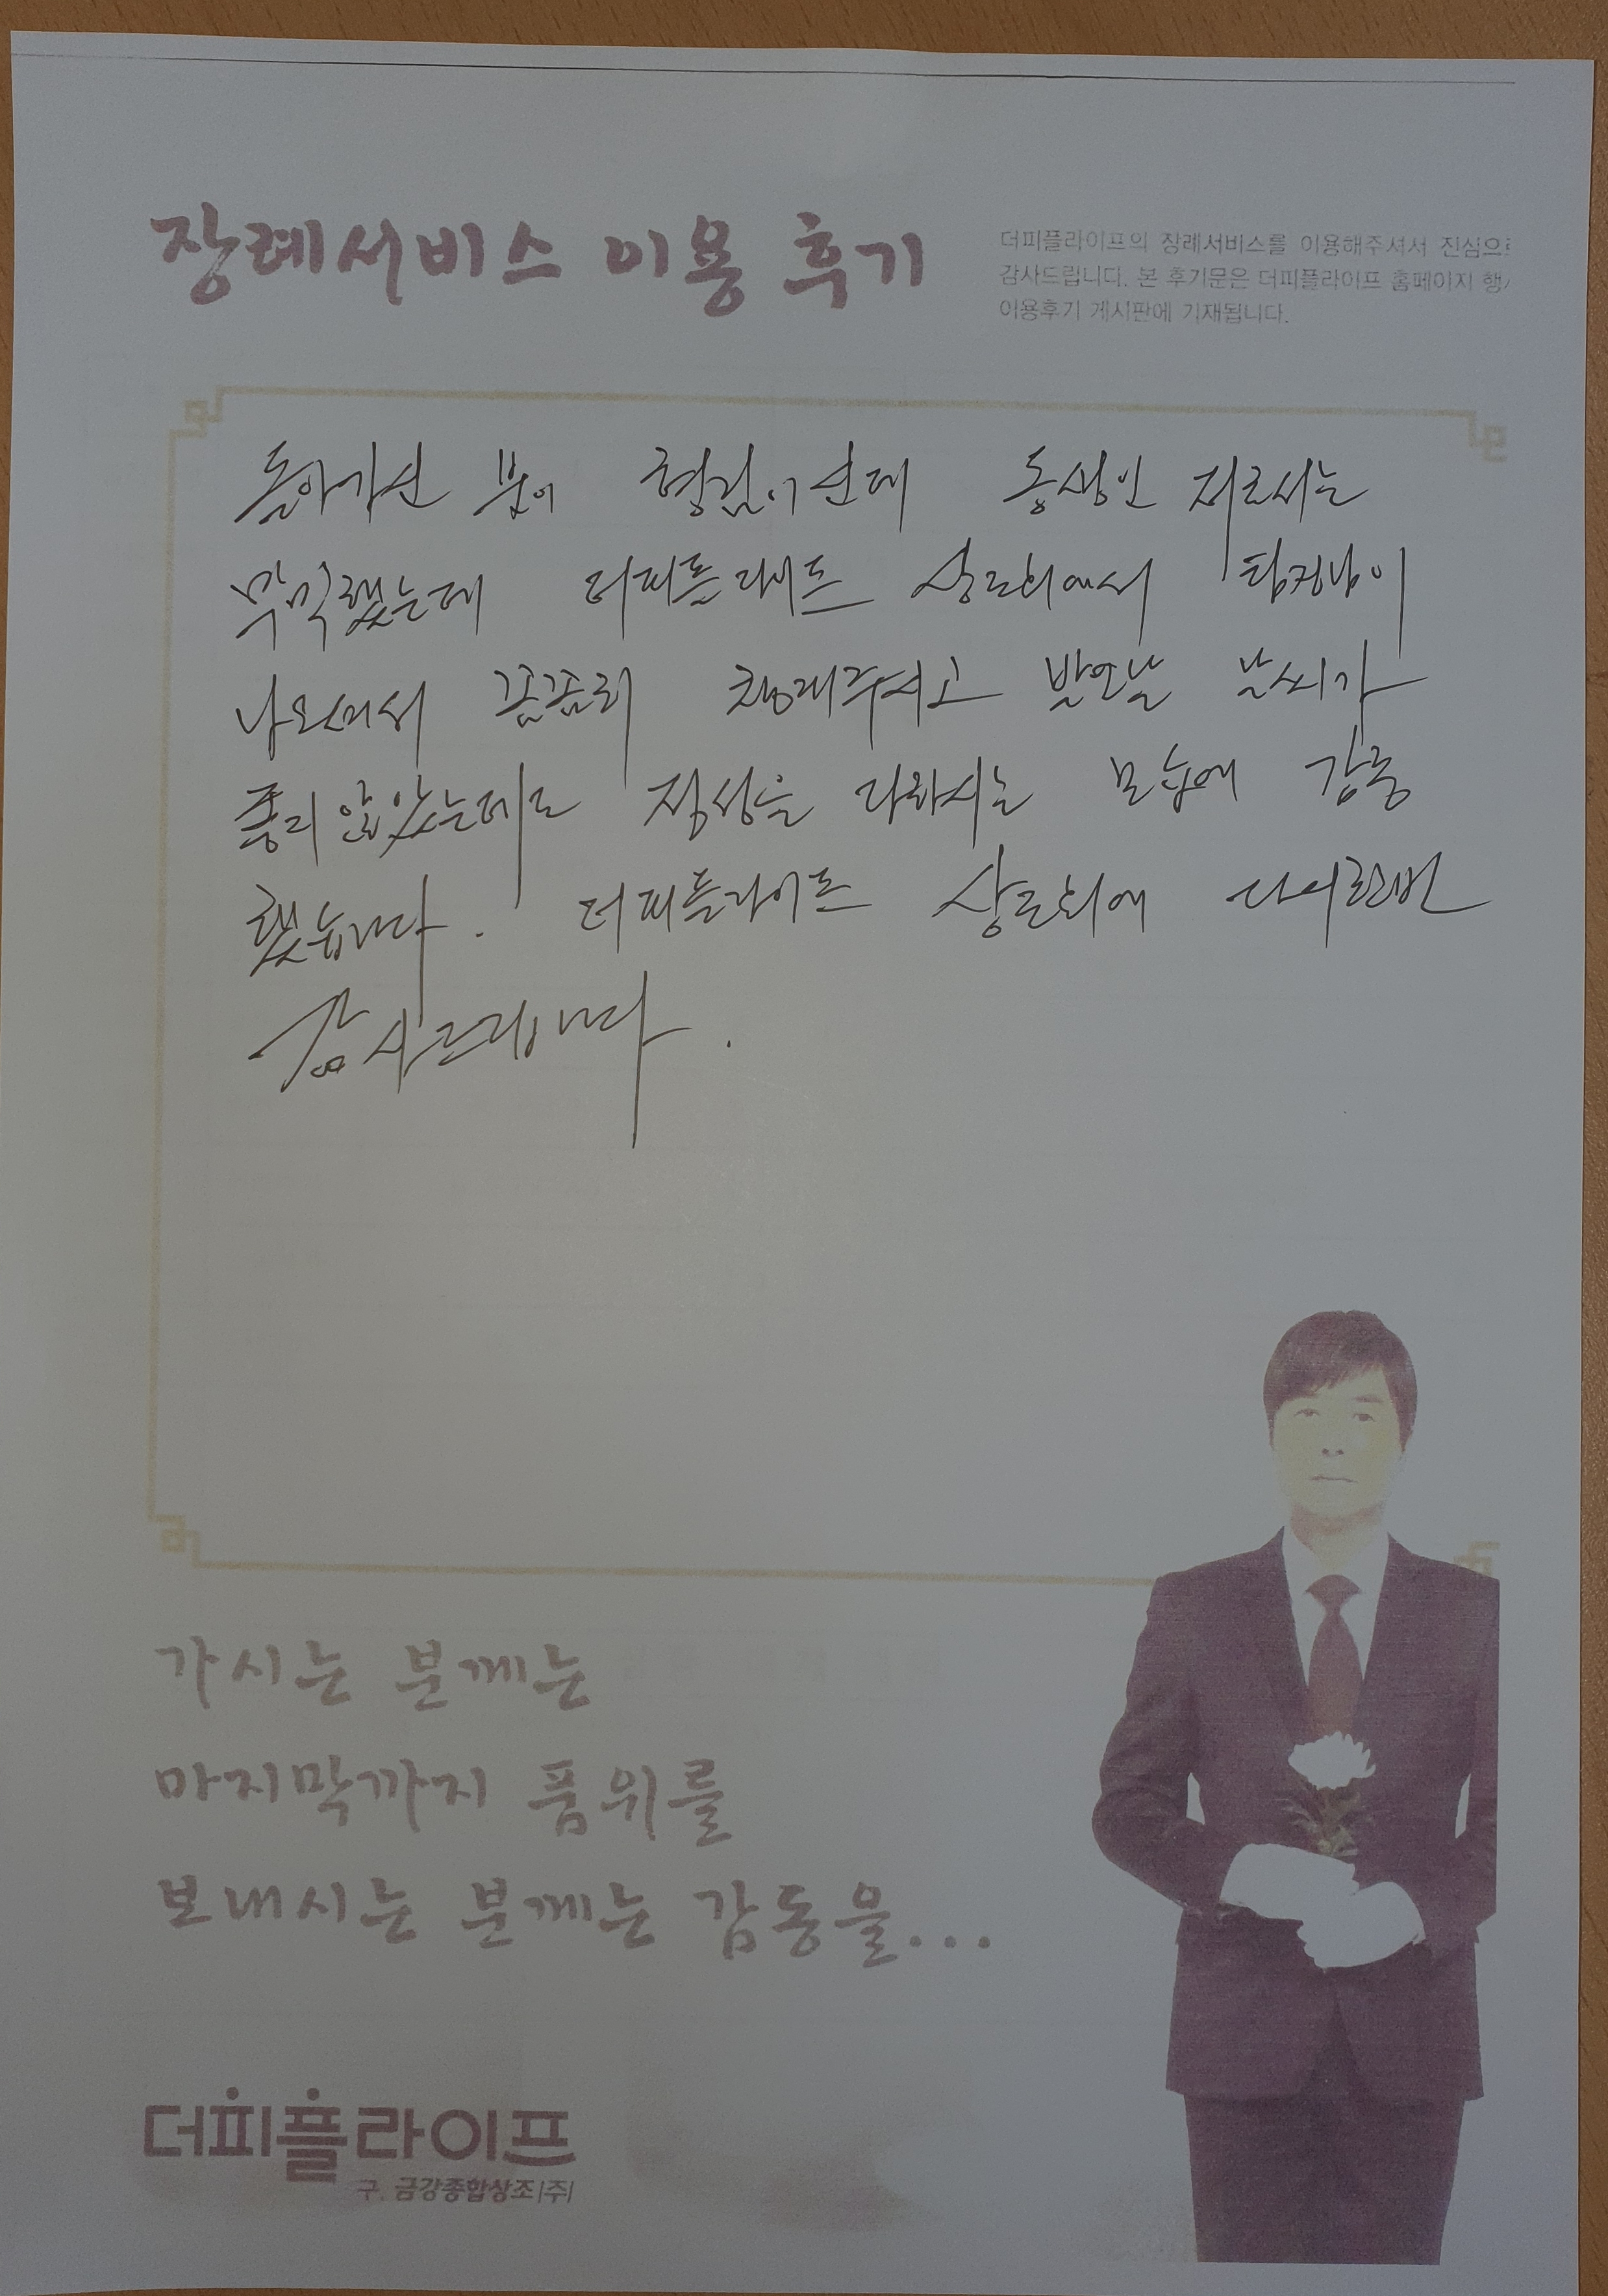 장례서비스 이용 후기
더피플라이프의 장례서비스를 이용해주셔서 진심으로
감사드립니다. 본 후기문은 더피플라이프 홈페이지 행사
이용후기 게시판에 기재됩니다.
돌아가신 분이 형님이신데 동생인 저로서는
막막했는데 더피플라이프 상조회에서 팀장님이
나오셔서 꼼꼼히 챙겨주시고 발인날 날씨가
좋지 않았는데도 정성을 다하시는 모습에 감동
했습니다. 더피플라이프 상조회에 다시한번
감사드립니다.
가시는 분께는
마지막까지 품위를
보내시는 분께는 감동을...
더피플라이프
구. 금강종합상조(주)